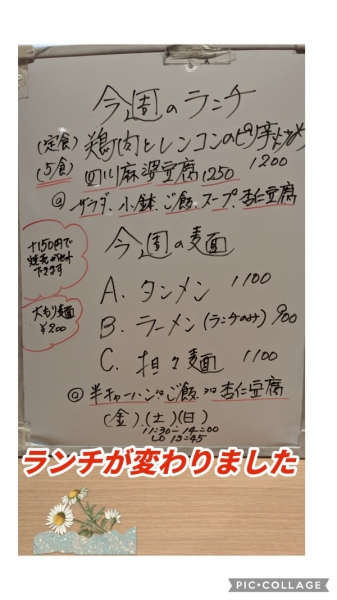 今週のランチ
(定食) 鶏肉とレンコンのピリ辛炒め 1200
(5食) 四川麻婆豆腐 1250
@ サラダ、小鉢、ご飯、スープ、杏仁豆腐
+150円で
できます
今週の麺
A. タンメン 1100
大もり麺
¥200
B. ラーメン (ランチのみ) 900
C. 担々麺 1100
@ 半チャーハン又はご飯 又は 杏仁豆腐
(金)(土)(日)
11:30-14:00
LO 13:45
ランチが変わりました
PIC•COLLAGE